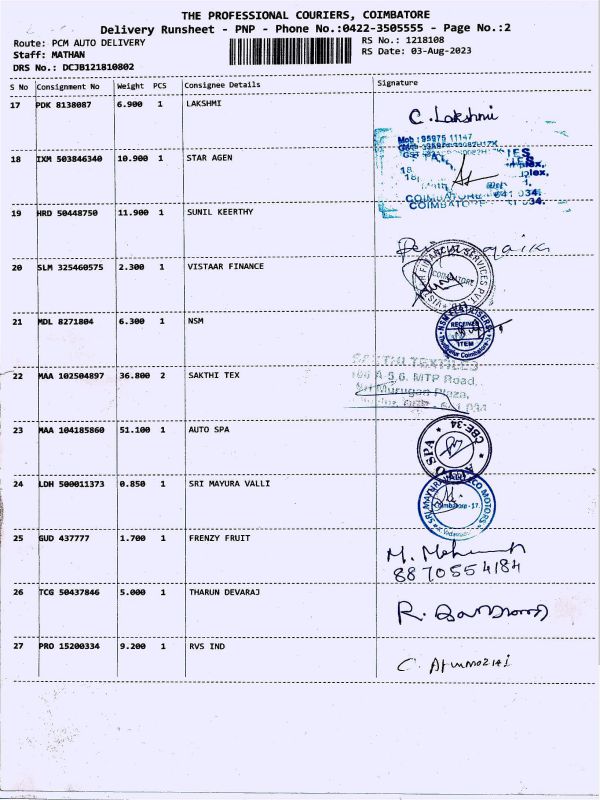 THE PROFESSIONAL COURIERS, COIMBATORE
Delivery Runsheet - PNP - Phone No.:0422-3505555 - Page No.:2
Route: PCM AUTO DELIVERY RS No.: 1218108
Staff: MATHAN RS Date: 03-Aug-2023
DRS No.: DCJB121810802
S No Consignment No Weight PCS Consignee Details Signature
17 PDK 8138087 6.900 1 LAKSHMI
C. Lakshmi
Mob : 95975 11147
18 IXM 503846340 10.900 1 STAR AGEN
COIMBATORE
19 HRD 50448750 11.900 1 SUNIL KEERTHY
20 SLM 325460575 2.300 1 VISTAAR FINANCE
FINANCIAL SERVICES PVT.
COIMBATORE
21 MDL 8271804 6.300 1 NSM
RECEIVED
ITEM
SAKTHI TEXTILES
MTP Road,
Sri Murugan Plaza,
22 MAA 102504897 36.800 2 SAKTHI TEX
23 MAA 104185860 51.100 1 AUTO SPA
AUTO SPA CBE-34
24 LDH 500011373 0.850 1 SRI MAYURA VALLI
Coimbatore - 17.
25 GUD 437777 1.700 1 FRENZY FRUIT
8870554184
26 TCG 50437846 5.000 1 THARUN DEVARAJ
27 PRO 15200334 9.200 1 RVS IND